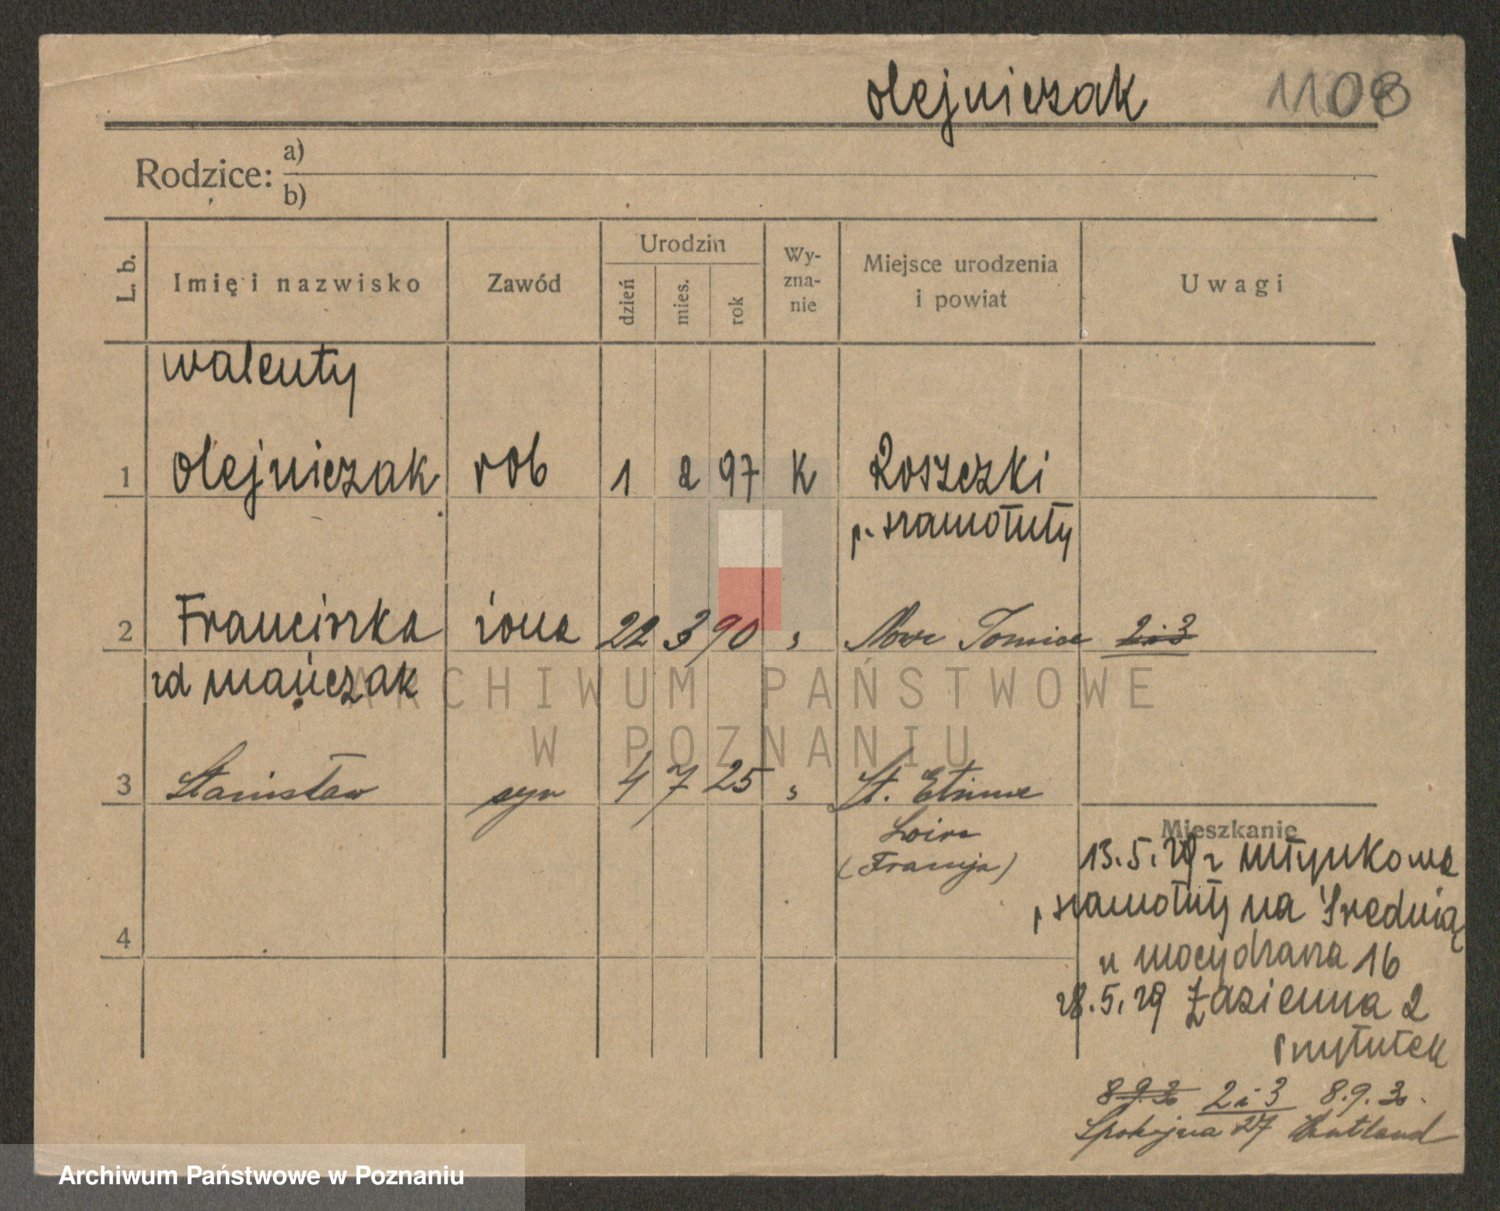 Olejniczak 1108
Rodzice: a)
b)
L. b. Imię i nazwisko Zawód Urodzin dzień mies. rok Wy-zna-nie Miejsce urodzenia i powiat Uwagi
Walenty
1 Olejniczak rob 1 2 97 K Roszczki
p. Szamotuły
2 Franciszka żona 22 3 90 " Nowe Tomice 2 i 3
zd Mańczak
3 Stanisław syn 4 7 25 " St. Etienne
Loire
(Francja)
Mieszkanie
13.5.29 z Młynkowa
p. Szamotuły na Średnią
u Mocydlarza 16
4
28.5.29 Łazienna 2
Przytułek
8.9.30 2 i 3 8.9.30.
Spokojna 27
ARCHIWUM PAŃSTWOWE
W POZNANIU
Archiwum Państwowe w Poznaniu